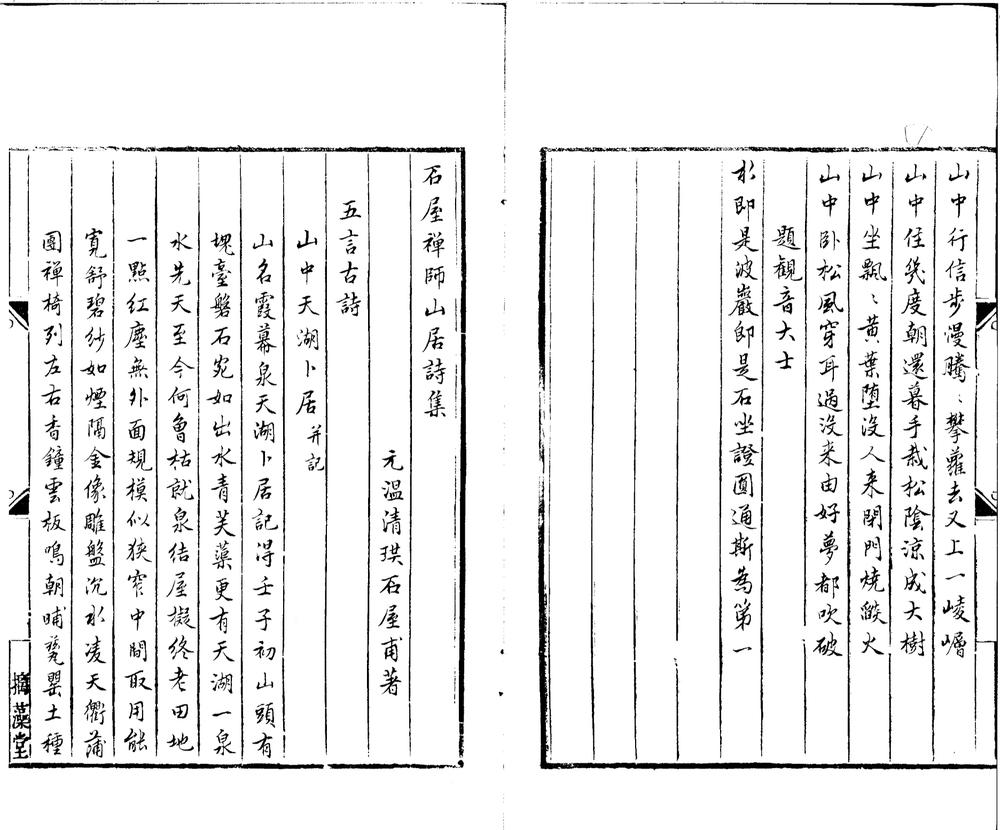 山中行信步漫騰〻攀蘿去又上一崚嶒
山中住幾度朝還暮手栽松陰涼成大樹
山中坐飄〻黃葉墮沒人来閉門燒燄火
山中卧松風穿耳過沒来由好夢都吹破
題觀音大士
水即是波巖即是石坐證圓通斯為第一
石屋禪師山居詩集
元溫清珙石屋甫著
五言古詩
山中天湖卜居并記
山名霞幕泉天湖卜居記得壬子初山頭有
塊臺磐石宛如出水青芙蕖更有天湖一泉
水先天至今何曾枯就泉结屋擬终老田地
一點红塵無外面規模似狹窄中間取用能
寬舒碧紗如煙隔金像雕盤沉水凌天衢蒲
團禪椅列左右香鐘雲板鳴朝晡甕罌土種
摛藻堂